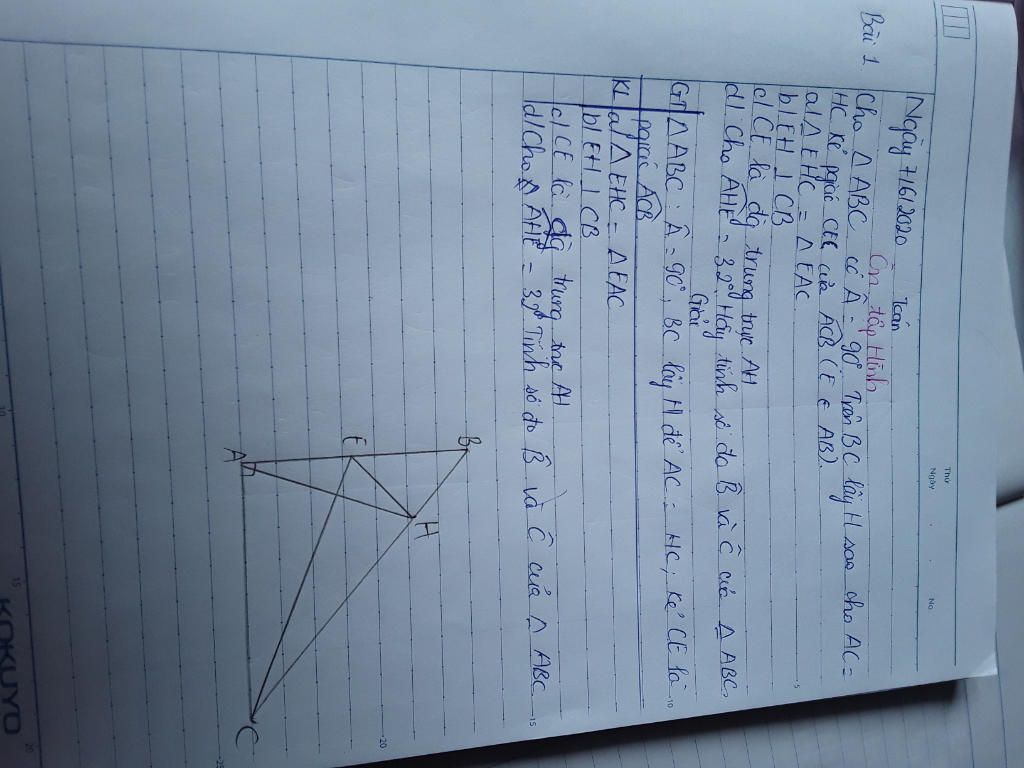 Thứ
Ngày
No
Ngày 7/6/2020 Toán
Ôn tập Hình
Bài 1
Cho △ ABC có Â = 90° Trên BC lấy H sao cho AC =
HC kẻ pgiác CE của ACB (E ∈ AB).
a/△ EHC = △ EAC
b/ EH ⊥ CB
c/ CE là đg trung trực AH
d/ Cho AHE = 32° Hãy tính số đo B̂ và Ĉ của △ ABC.
Giải
GT △ ABC : Â = 90°, BC lấy H để AC = HC, kẻ CE là
pgiác ACB
KL a/ △ EHC = △ EAC
b/ EH ⊥ CB
c/ CE là đg trung trực AH
d/ Cho AHE = 32° Tính số đo B̂ và Ĉ của △ ABC
B
E
H
A
C
5
10
15
20
25
10
15
20
KOKUYO